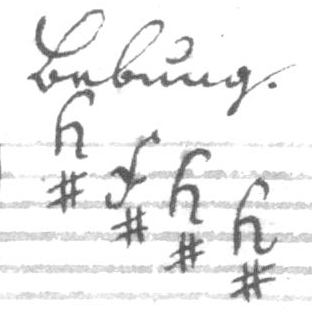 Bebung.
h f h h
# # # #